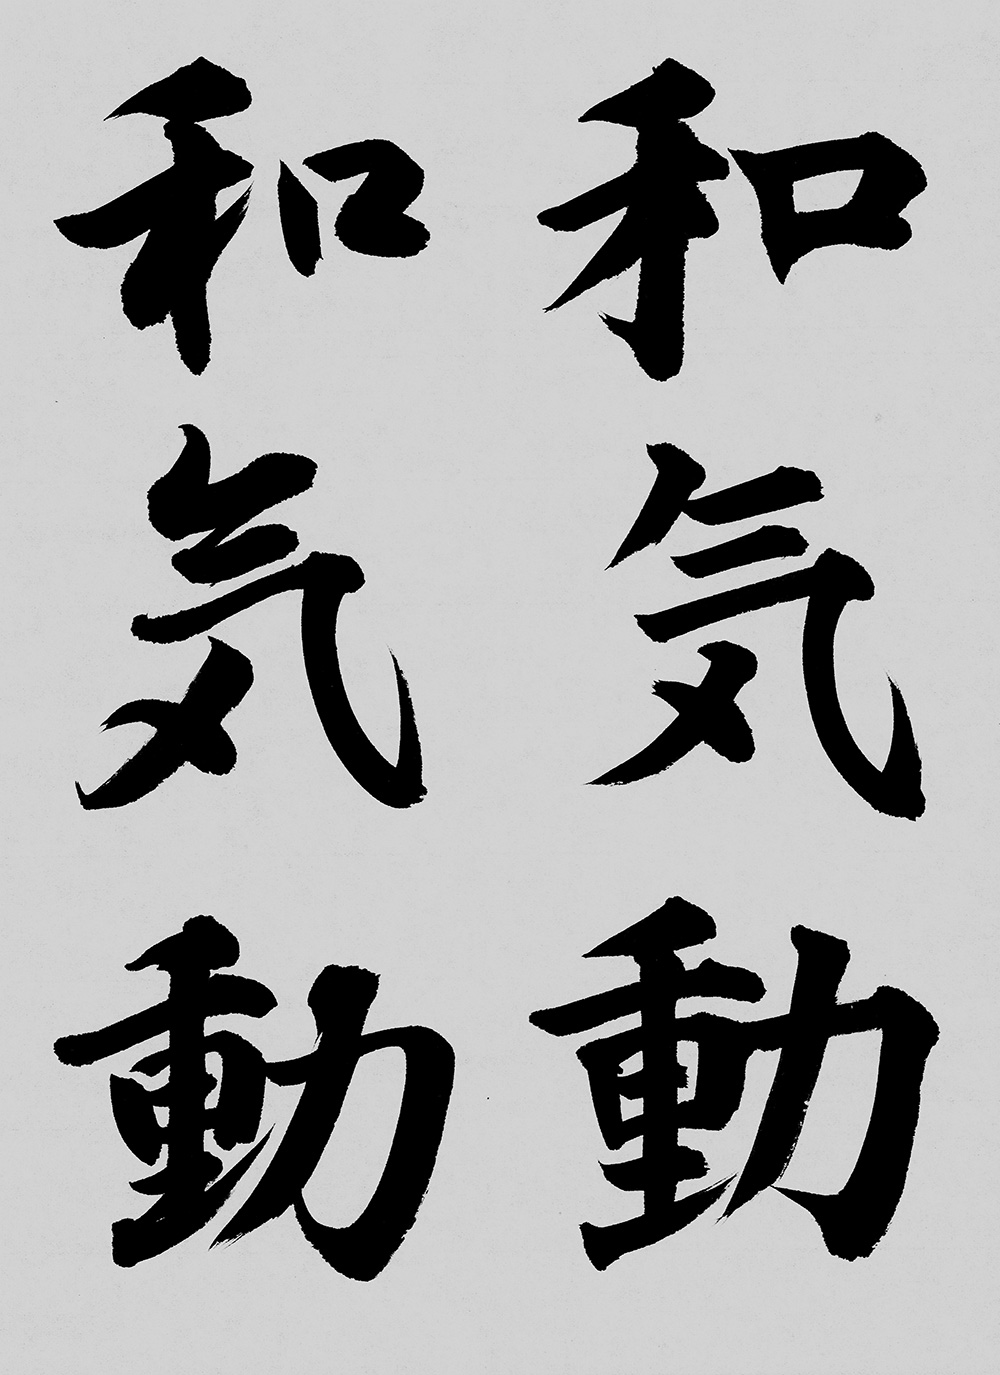 和気動
和気動